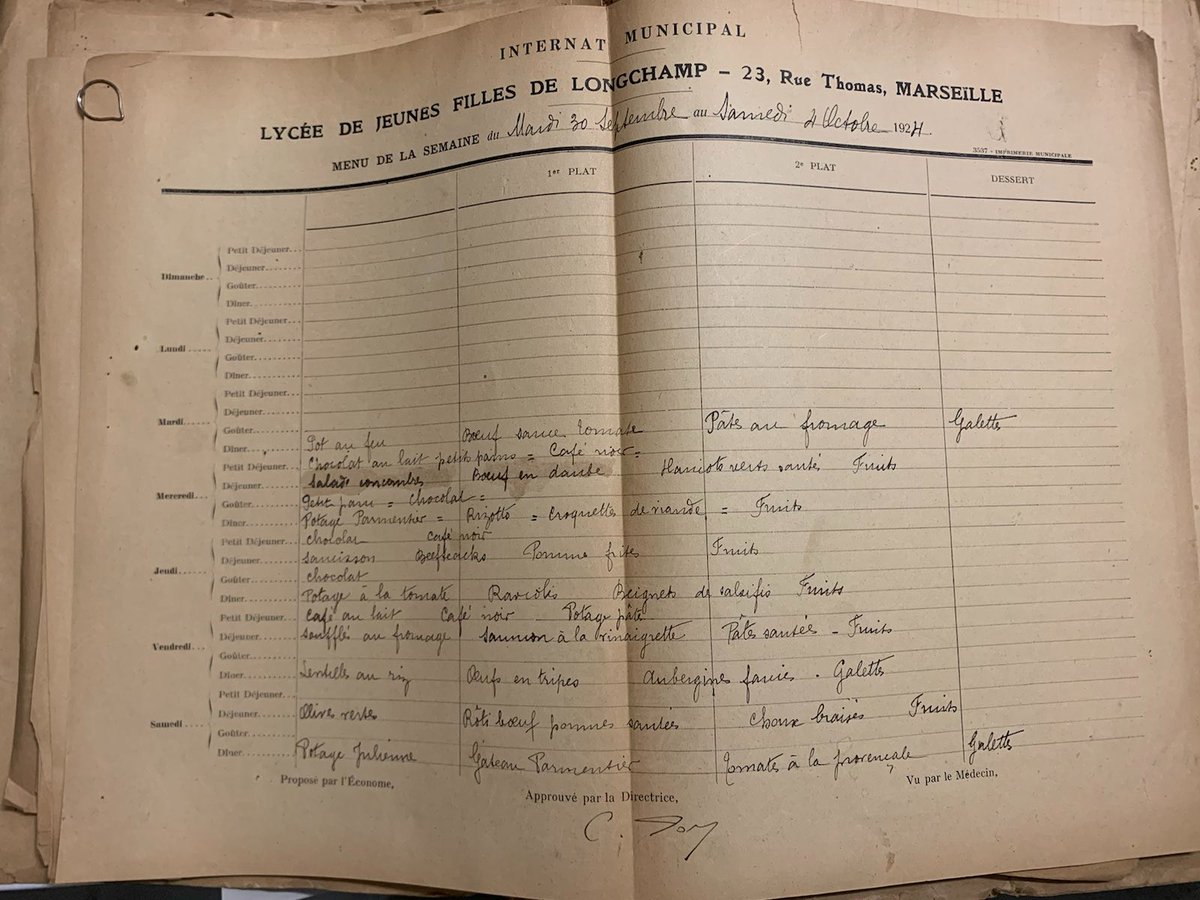 INTERNAT MUNICIPAL
LYCÉE DE JEUNES FILLES DE LONGCHAMP – 23, Rue Thomas, MARSEILLE
MENU DE LA SEMAINE du Mardi 30 Septembre au Samedi 4 Octobre 1924.
3537 - IMPRIMERIE MUNICIPALE
1er PLAT 2e PLAT DESSERT
Dimanche
Petit Déjeuner
Déjeuner
Goûter
Dîner
Lundi
Petit Déjeuner
Déjeuner
Goûter
Dîner
Mardi
Petit Déjeuner
Déjeuner
Goûter
Dîner Pot au feu Bœuf sauce tomate Pâtes au fromage Galettes
Mercredi
Petit Déjeuner Chocolat au lait petits pains = Café noir =
Déjeuner Salade concombres Bœuf en daube Haricots verts sautés Fruits
Goûter Petit pain = Chocolat =
Dîner Potage Parmentier = Rizotto = Croquettes de viande = Fruits
Jeudi
Petit Déjeuner chocolat café noir
Déjeuner saucisson Beefteacks Pomme frites Fruits
Goûter chocolat
Dîner Potage à la tomate Raviolis Beignets de salsifis Fruits
Vendredi
Petit Déjeuner Café au lait Café noir Potage pâte
Déjeuner soufflés au fromage saumon à la vinaigrette Pâtes sautées – Fruits
Goûter
Dîner Lentilles au riz Œufs en tripes Aubergines farcies . Galettes
Samedi
Petit Déjeuner
Déjeuner Olives vertes Rôti bœuf pommes sautées Choux braisés Fruits
Goûter
Dîner Potage Julienne Gâteau Parmentier Tomates à la provençale Galettes
Proposé par l'Économe, Approuvé par la Directrice, Vu par le Médecin,